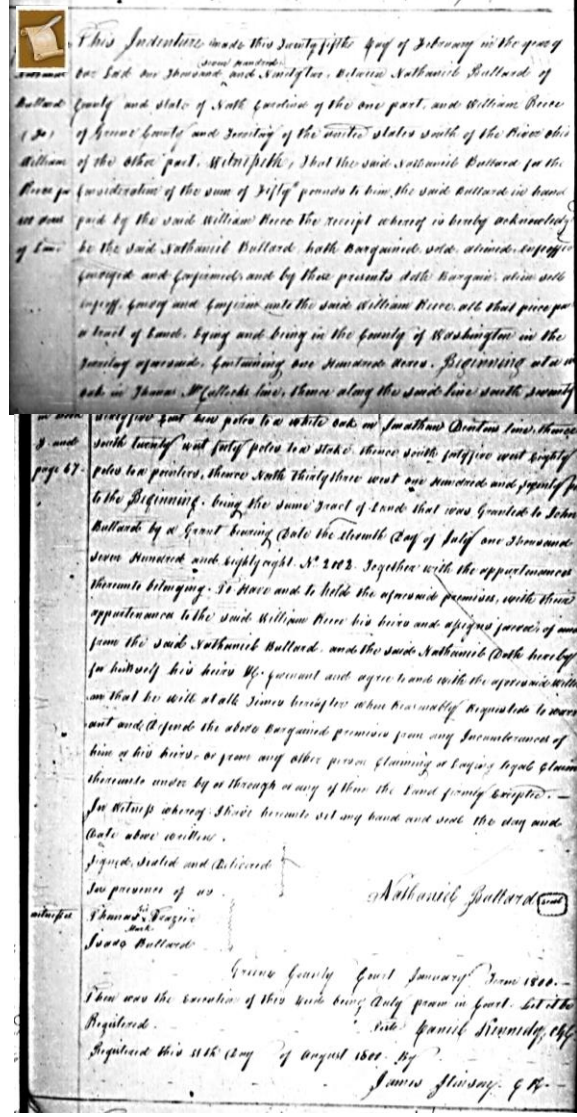 This Indenture made this Twenty fifth Day of February in the year of
our Lord one Thousand seven hundred and Ninety two, Between Nathaniel Bullard of
County and State of North Carolina of the one part, and William Reece
of Greene County and Territory of the united states south of the River ohio
of the other part, Witnesseth, That the said Nathaniel Bullard for the
Consideration of the sum of Fifty pounds to him, the said Bullard in hand
paid by the said William Reece the receipt whereof is hereby acknowledg
he the said Nathaniel Bullard hath Bargained, sold, aliened, Enfeoffed
Conveyed and Confirmed, and by these presents doth Bargain, alien sell
Enfeoff, Convey and Confirm unto the said William Reece, all that piece par
a tract of Land, Lying and being in the County of Washington in the
Territory aforesaid, Containing one Hundred Acres, Beginning at a w
oak in Thomas McCullochs line, thence along the said line south seventy
Bullard
(To)
William
Reece for
of Land
East ten poles to a white oak on Jonathan Dentons line, thence
south twenty west forty poles to a stake, thence south forty five west Eighty
poles to a pointers, thence North Thirty three west one Hundred and seventy
to the Beginning, being the same Tract of Land that was Granted to John
Bullard by a Grant bearing Date the Eleventh Day of July one Thousand
seven Hundred and Eighty eight. No 2002. Together with the appurtenances
thereunto belonging. To Have and to hold the aforesaid premises, with their
appurtenances to the said William Reece his heirs and assigns forever, of and
from the said Nathaniel Bullard, and the said Nathaniel Doth hereby
for himself his heirs &c. Covenant and agree to and with the aforesaid Willi
am that he will at all Times hereafter when Reasonably Requested to warr
ant and Defend the above Bargained premises from any Incumbrances of
him or his heirs, or from any other person Claiming or Laying legal Claim
thereunto under by or through or any of them the Land firmly Excepted.
In Witness whereof I have hereunto set my hand and seal the day and
Date above written.
Signed, sealed and Delivered
In presence of us
Nathaniel Bullard seal
page 67
witnesses
Thomas his Mark Frazier
Isaac Bullard
Greene County Court January Term 1800.
Then was the Execution of this Deed being Duly proven in Court. Let it be
Registered. Daniel Kennedy,
Registered this 11th Day of August 1800. By
James